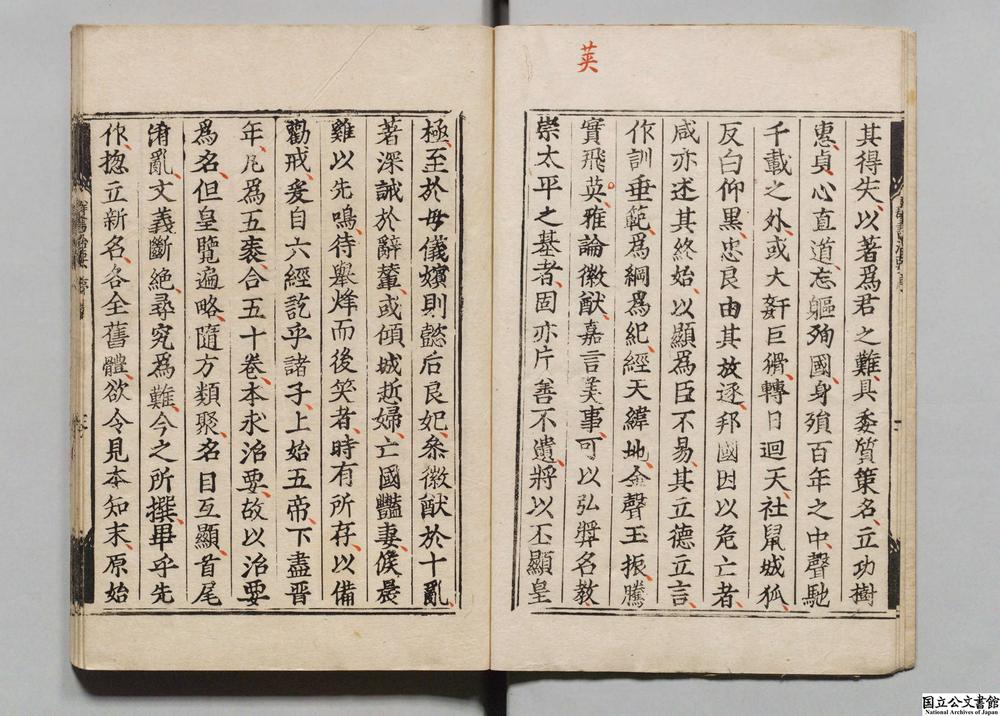 莢
其得失以著爲君之難具委質策名立功樹
惠貞心直道忘軀殉國身殞百年之中聲馳
千載之外或大姧巨猾轉日迴天社鼠城狐
反白仰黒忠良由其放逐邦國因以危亡者
咸亦述其終始以顯爲臣不易其立德立言
作訓垂範爲綱爲紀經天緯地金聲玉振騰
實飛英雅論徽猷嘉言美事可以弘奬名教
崇太平之基者固亦片善不遺將以丕顯皇
極至於母儀嬪則懿后良妃叅徽猷於十亂
著深誡於辭輦或傾城抵婦亡國豔妻候晨
雞以先鳴待舉烽而後笑者時有所存以備
勸戒爰自六經訖乎諸子上始五帝下盡晉
年凡爲五袠合五十卷本求治要故以治要
爲名但皇覽遍略隨方類聚名目互顯首尾
淆亂文義斷絶尋究爲難今之所撰異乎先
作揔立新名各全舊體欲令見本知末原始
国立公文書館
National Archives of Japan